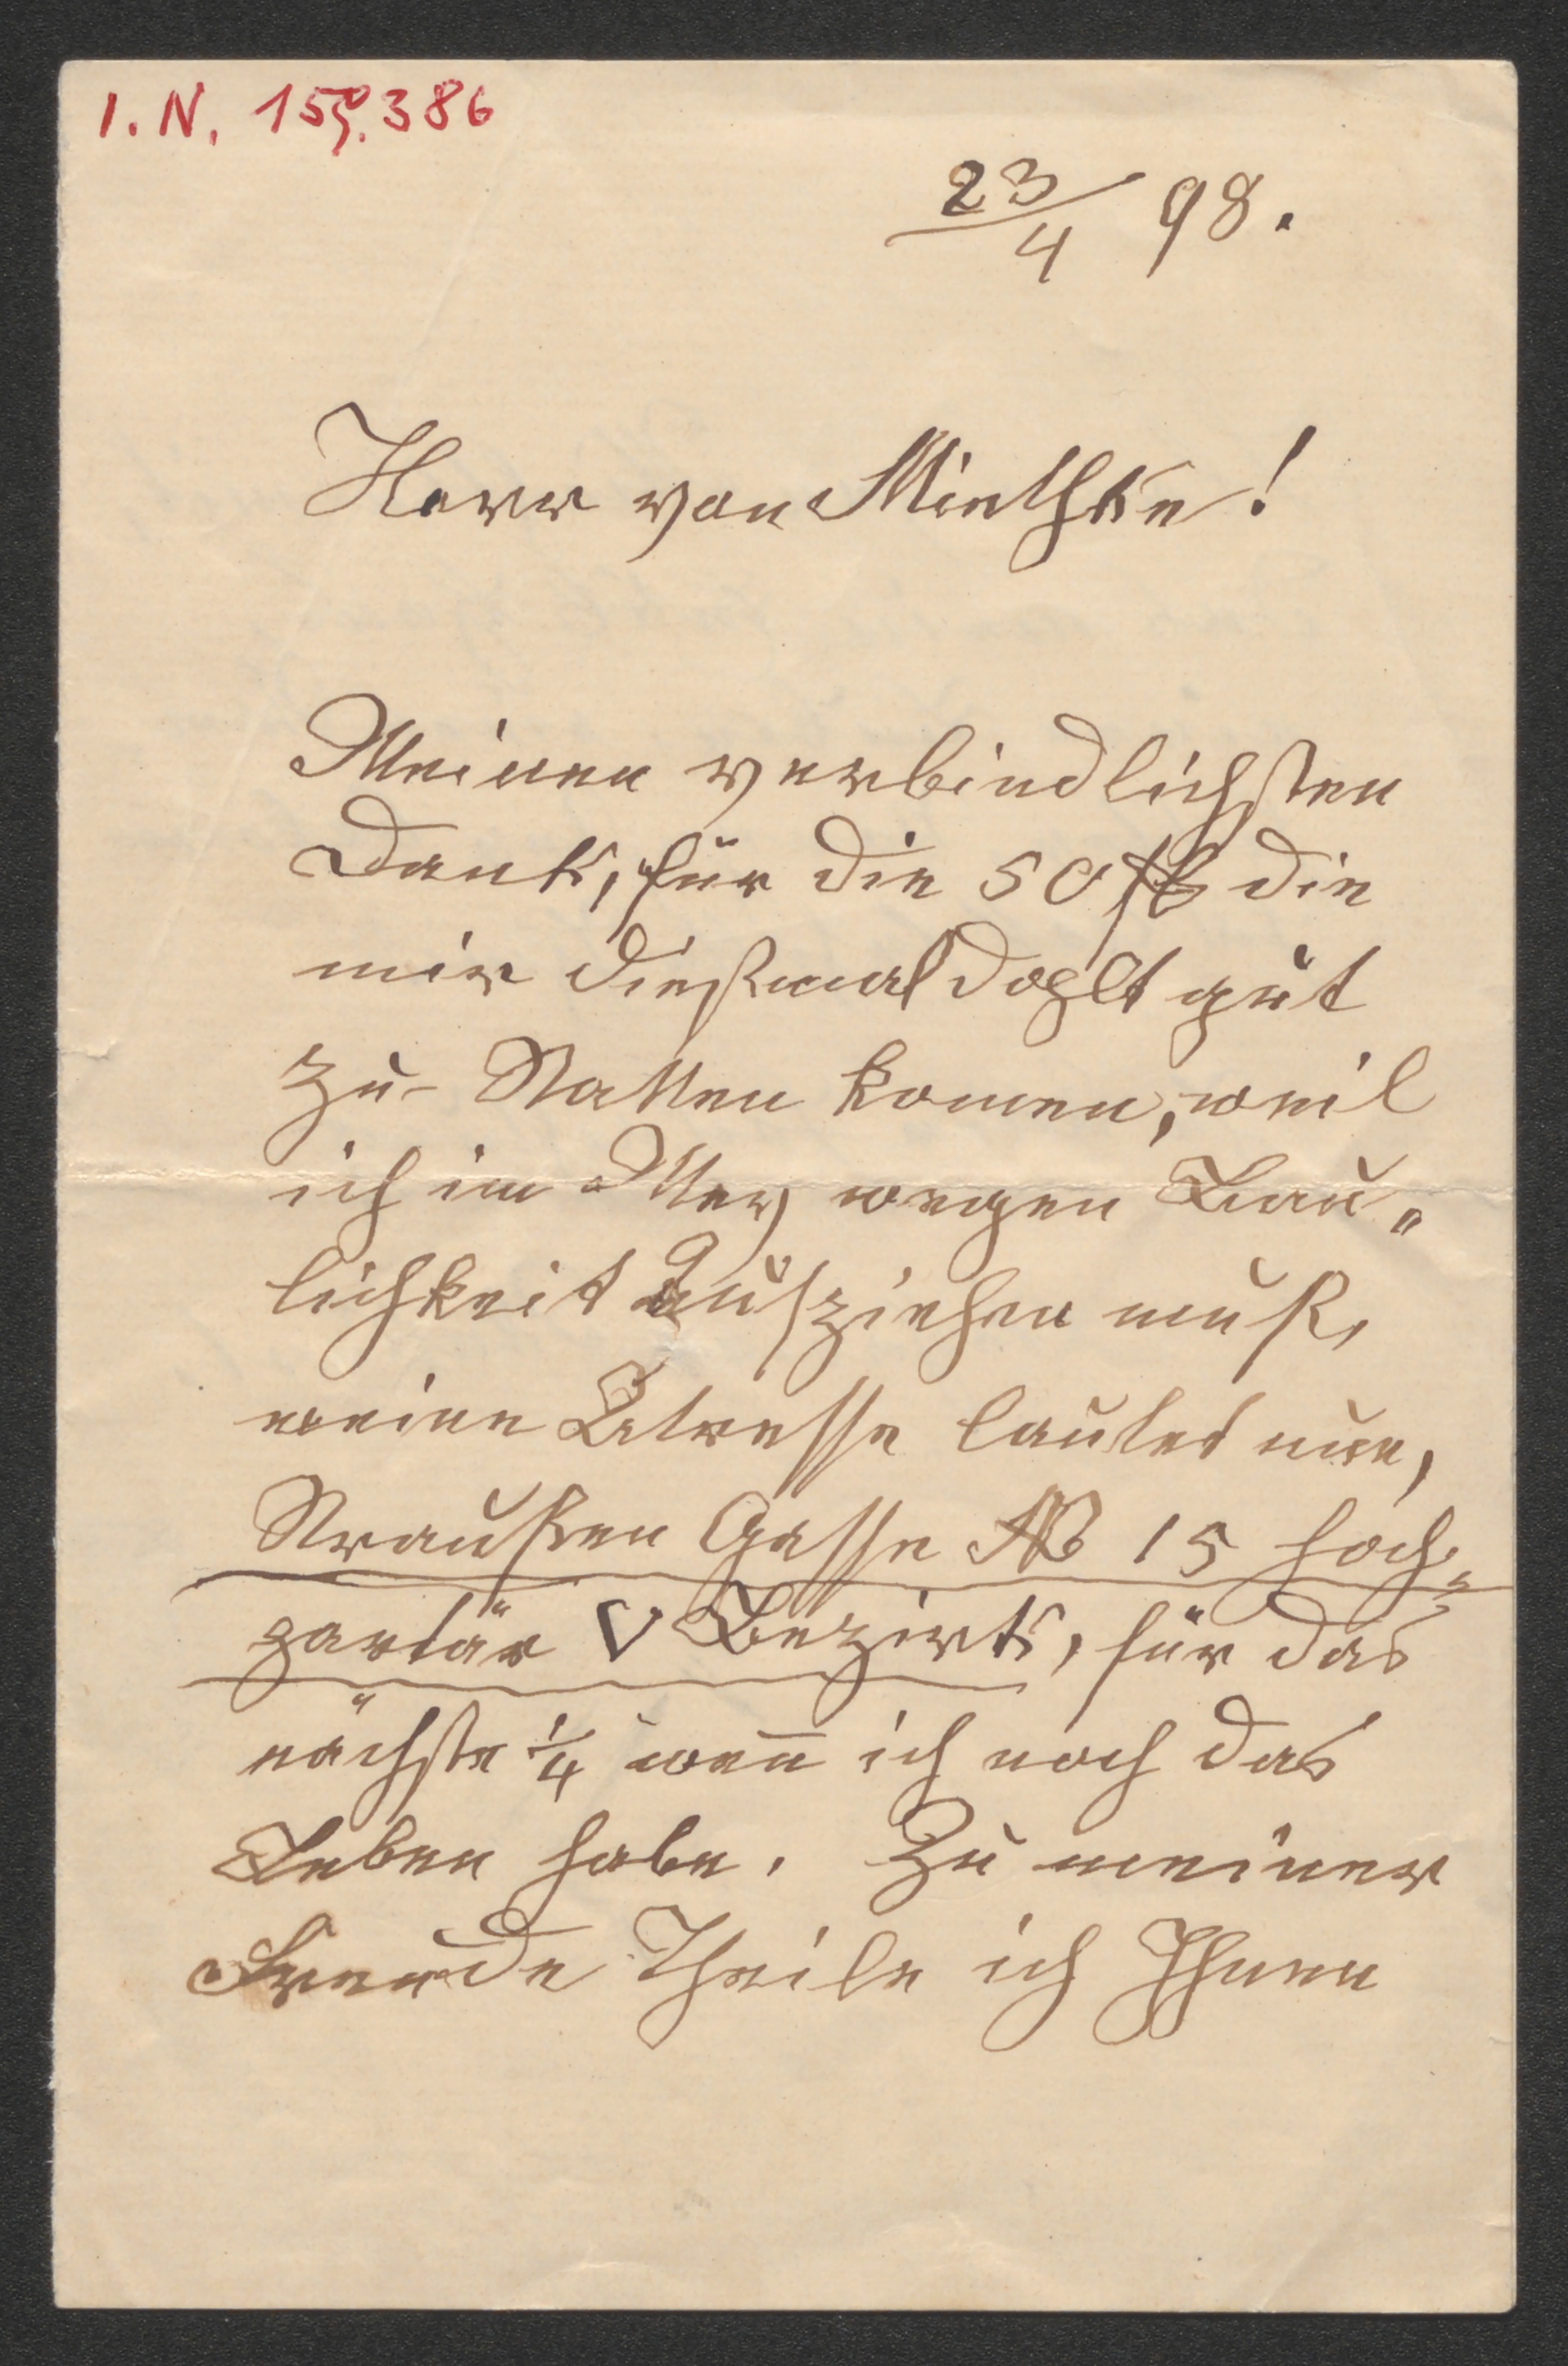 I. N. 159.386
23/4 98.
Herr von Miethke!
Meinen verbindlichsten
Dank, für die 50 fl die
mir dießmal doplt gut
zu Statten komen, weil
ich im May wegen Bau„
lichkeit Ausziehen muß,
meine Atresse lautet nun,
Straußen Gasse No 15 hoch„
partär V Bezirk, für das
nächste 1/4 wen̅ ich noch das
Leben habe. Zu meiner
Freude Theile ich Ihnen